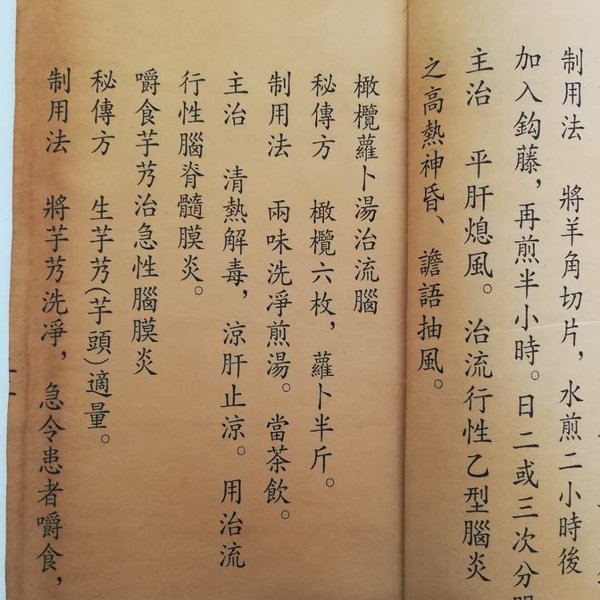 制用法　將羊角切片，水煎二小時後
加入鈎藤，再煎半小時。日二或三次分
主治　平肝熄風。治流行性乙型腦炎
之高熱神昏、譫語抽風。
橄欖蘿卜湯治流腦
秘傳方　橄欖六枚，蘿卜半斤。
制用法　兩味洗凈煎湯。當茶飲。
主治　清熱解毒，涼肝止涼。用治流
行性腦脊髓膜炎。
嚼食芋艿治急性腦膜炎
秘傳方　生芋艿(芋頭)適量。
制用法　將芋艿洗凈，急令患者嚼食，